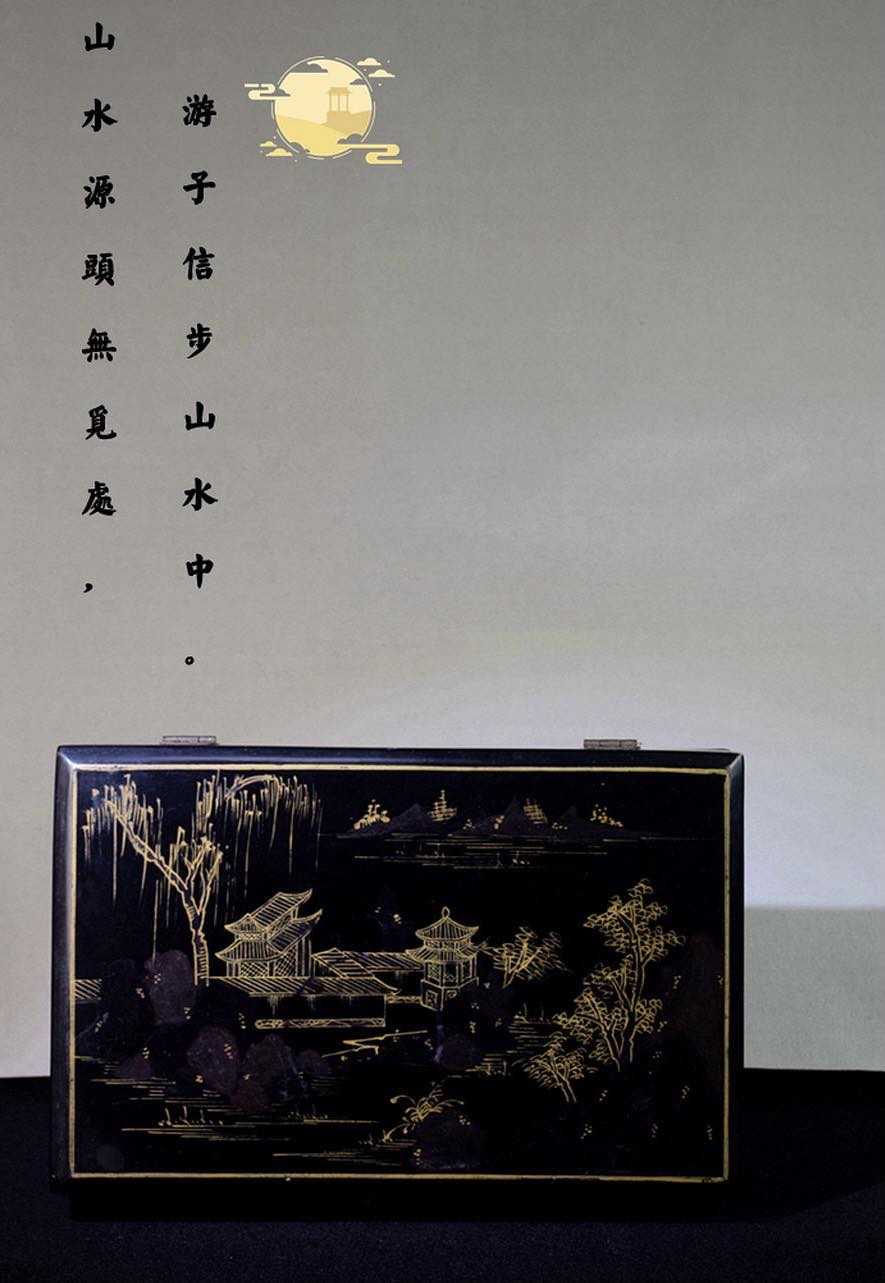 山水源頭無覓處，
游子信步山水中。